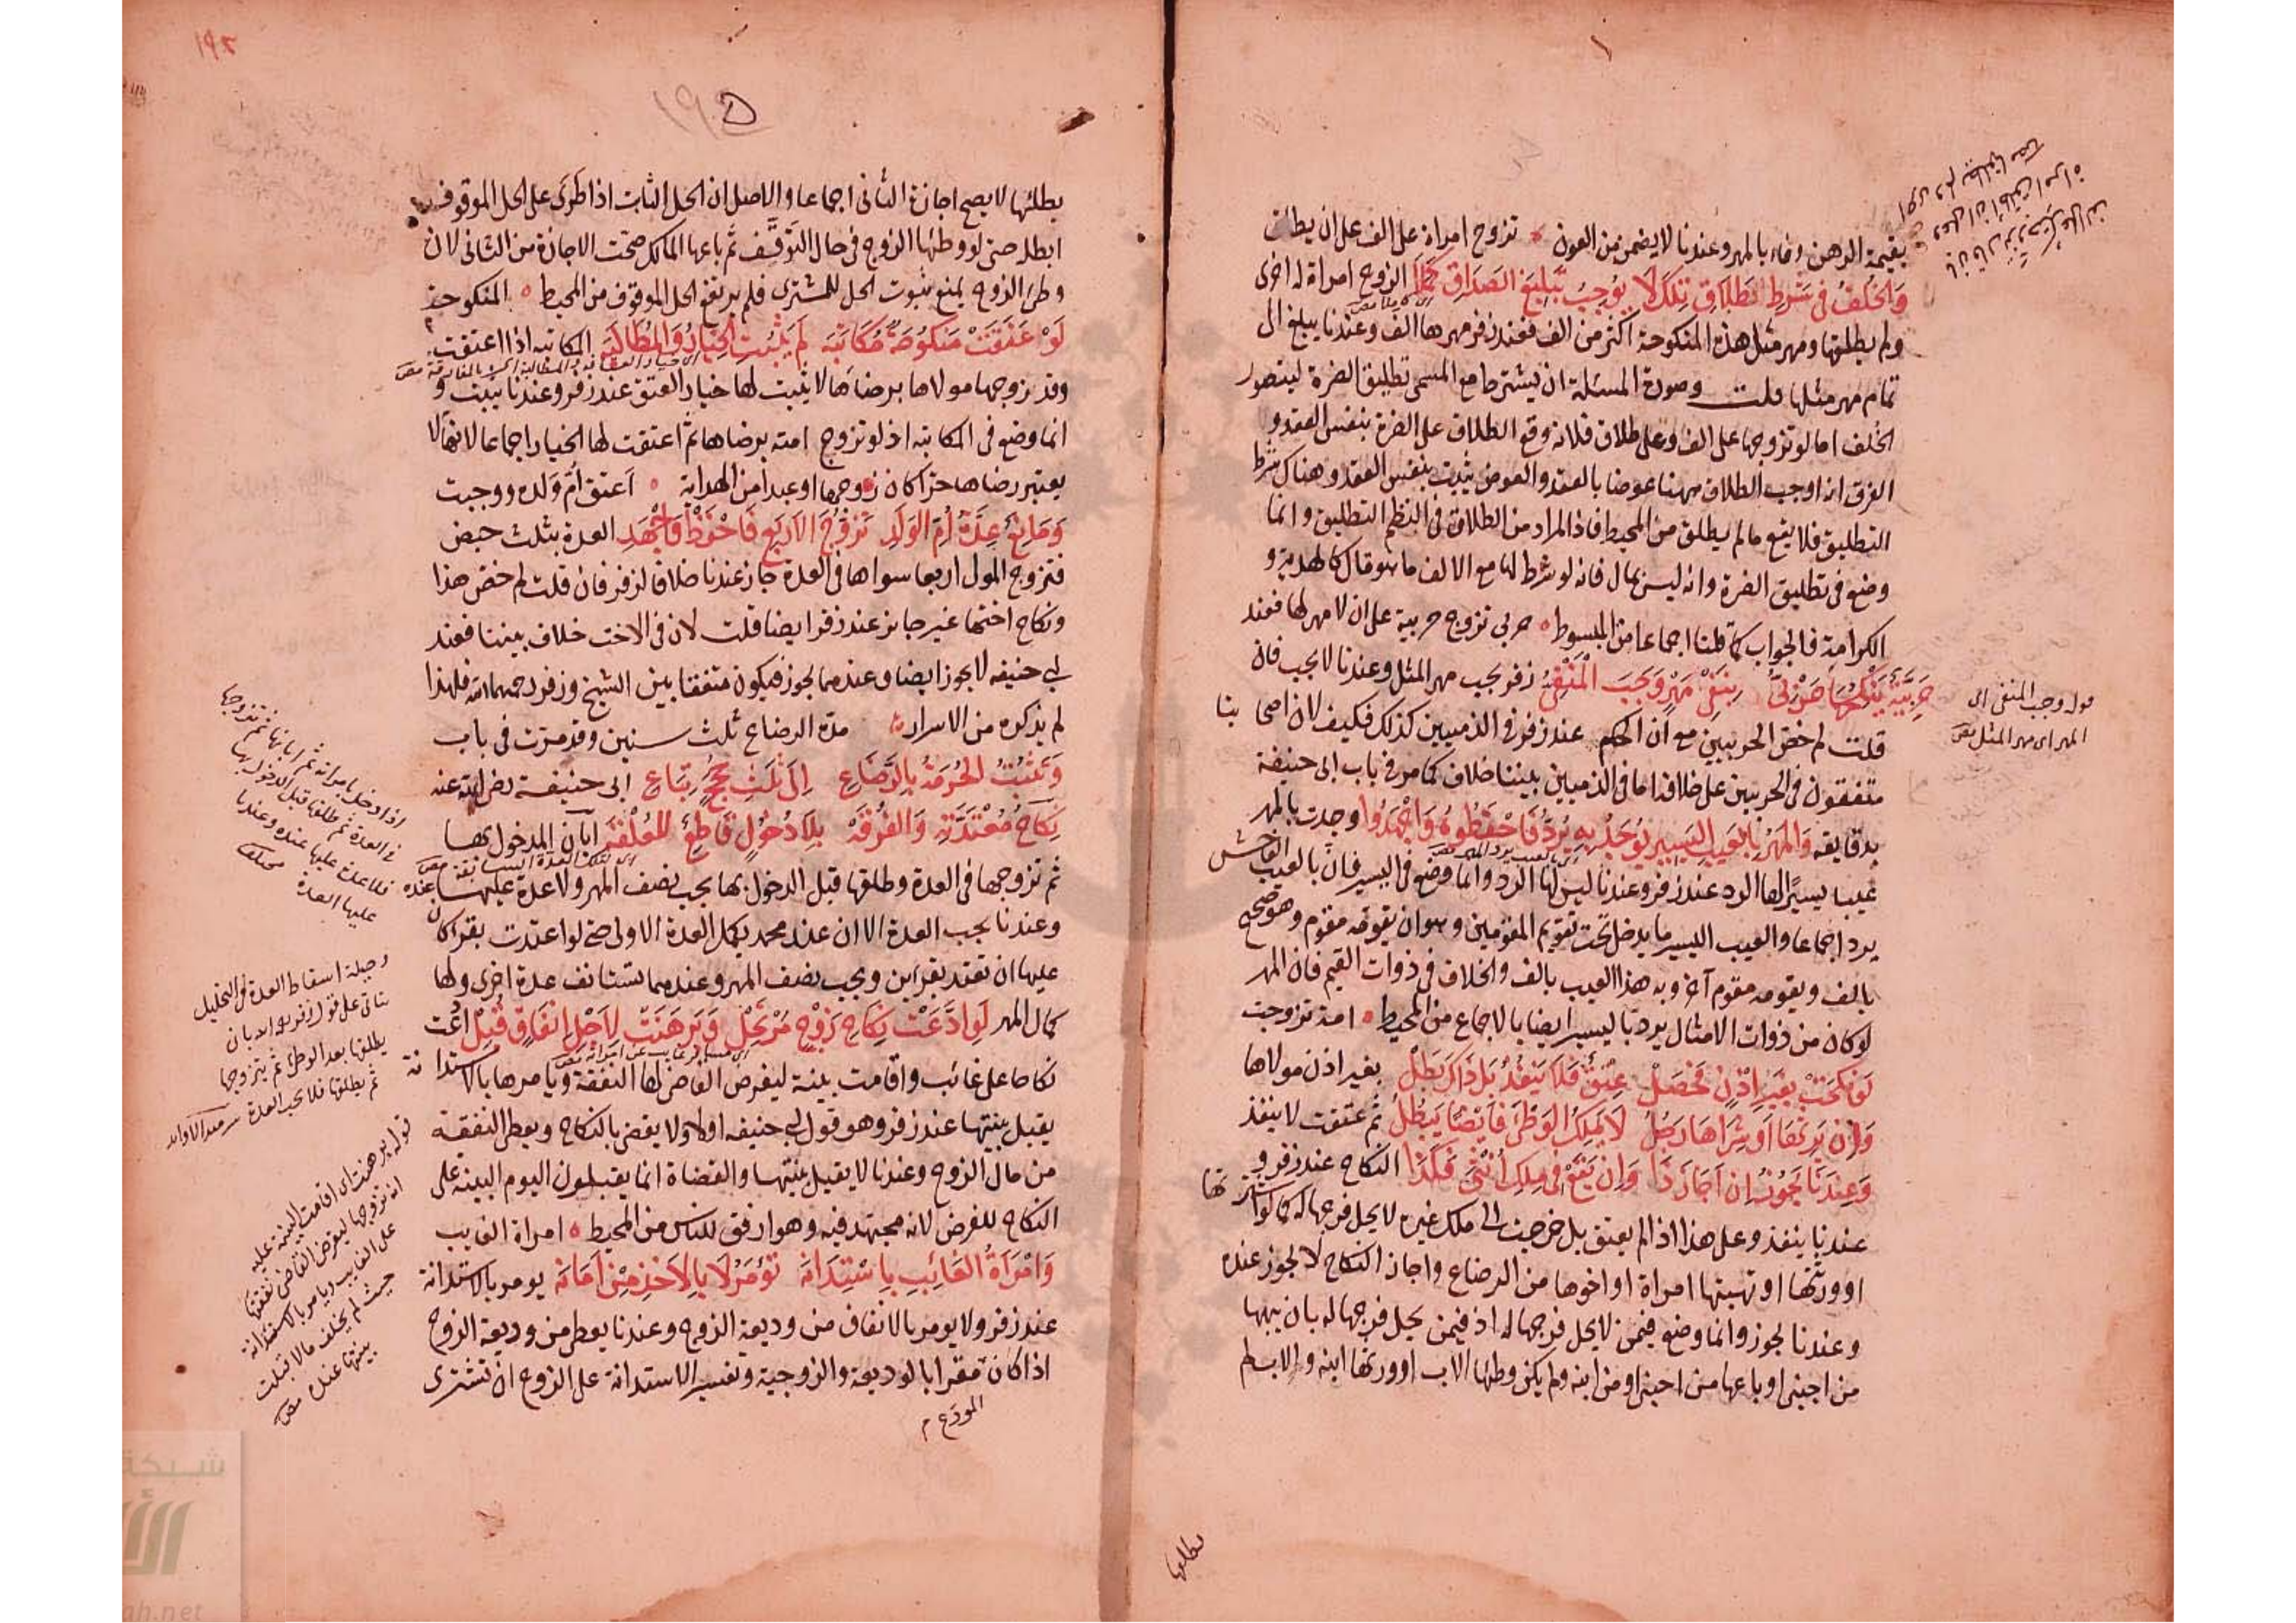 بقيمة الرهن وفاء بالمهر وعندنا لا يضمن من العون تزوج امراة على الف على ان يطلق
والخلف في شرط تطلاق تلك لا يوجب تبليغ الصداق كملا الزوج امراة له اخرى
ولم يطلقها ومهر مثل هذه المنكوحة اكثر من الف فعند زفر مهرها الف وعندنا يبلغ الى
تمام مهر مثلها قلت وصورة المسئلة ان يشترط مع المسمى تطليق الضرة ليتصور
الخلف اما لو تزوجها على الف وعلى طلاق فلانة وقع الطلاق على الضرة بنفس العقد و
الفرق انه اوجب الطلاق ههنا عوضا بالعقد والعوض يثبت بنفس العقد وهناك شرط
التطليق فلا يقع ما لم يطلق من المحيط فاذا المراد من الطلاق في النظم التطليق وانما
وضع في تطليق الضرة وانه ليس بمال فانه لو شرط لها مع الالف ما هو مال كالهدية و
الكرامة فالجواب كما قلنا اجماعا من المبسوط حربي تزوج حربية على ان لا مهر لها فعند
حربية ينكحها حربي بنفي مهر وجب المنفي زفر يجب مهر المثل وعندنا لا يجب فان
قلت لم خص الحربيين مع ان الحكم عند زفر في الذميين كذلك فكيف لان اصحابنا
متفقون في الحربيين على خلافه اما في الذميين بيننا خلاف كما مر في باب ابي حنيفة
بدقايقه والمهر بالعيب اليسير يوجد به يرد فاحفظوه واجهدوا وجدت بالمهر
عيبا يسيرا لها الرد عند زفر وعندنا ليس لها الرد وانما وضع في اليسير فان بالعيب الفاحش
يرد اجماعا والعيب اليسير ما يدخل تحت تقويم المقومين وهو ان يقومه مقوم وهو صحيح
بالف ويقومه مقوم آخر وبه هذا العيب بالف والخلاف في ذوات القيم فان المهر
لو كان من ذوات الامثال يرد باليسير ايضا بالاجماع من المحيط امة تزوجت
لو نكحت بغير اذن فحصل عتق فلا ينفذ بل ذاك بطل بغير اذن مولاها
وان يرثها او شراها رجل لا يملك الوطئ فايضا يبطل ثم عتقت لا ينفذ
وعندنا يجوز ان اجاز ذا وان يقع في ملك انثى فكذا النكاح عند زفر و
عندنا ينفذ وعلى هذا اذا لم يعتق بل خرجت الى ملك غيره لا يحل فرجها له كما لو اشترتها
او ورثتها او تهبتها امراة او اخوها من الرضاع واجاز النكاح لا يجوز عنده
وعندنا يجوز وانما وضع فيمن لا يحل فرجها له اذ فيمن يحل فرجها له بان يبيها
من اجنبي او باعها من اجنبي او من ابنه ولم يكن وطئها الاب او ورثها ابنه والاب لم
قوله وجب المنفي اي
المهر اي مهر المثل
يطلقها
١٩٢
١٩٥
يطلئها لا يصح اجازة الثاني اجماعا والاصل ان الحل الثابت اذا طرئ على الحل الموقوف
ابطله حتى لو وطئها الزوج في حال التوقف ثم باعها المالك صحت الاجازة من الثاني لان
وطئ الزوج يمنع ثبوت الحل للمشتري فلم يرتفع الحل الموقوف من المحيط المنكوحة
لو عتقت منكوحة مكاتبه لم يثبت الخيار والمطالبه المكاتبه اذا اعتقت
وقد زوجها مولاها برضاها لا يثبت لها خيار العتق عند زفر وعندنا يثبت و
انما وضع في المكاتبه اذ لو تزوج امته برضاها ثم اعتقت لها الخيار اجماعا لانها لا
يعتبر رضاها حرا كان زوجها او عبدا من الهداية اعتق ام ولده ووجبت
ومانع عدة ام الولد تزوج الاربع فاحفظ واجهد العدة بثلث حيض
فتزوج المولى اربعا سواها في العدة جاز عندنا خلافا لزفر فان قلت لم خص هذا
ونكاح اختها غير جائز عند زفر ايضا قلت لان في الاخت خلاف بيننا فعند
ابي حنيفه لا يجوز ايضا وعندهما يجوز فيكون متفقا بين الشيخ وزفر رحمهما الله فلهذا
لم يذكره من الاسرار مدة الرضاع ثلث سنين وقد مرت في باب
وتثبت الحرمة بالرضاع الى ثلث حجج تباع ابي حنيفة رضي الله عنه
نكاح معتدته والفرقه بلا دخول قاطع للعلقه ابان المدخول بها
ثم تزوجها في العدة وطلقها قبل الدخول بها يجب نصف المهر ولا عدة عليها عنده
وعندنا يجب العدة الا ان عند محمد يكمل العدة الاولى حتى لو اعتدت بقرء كان
عليها ان تعتد بقرأين ويجب نصف المهر وعندهما تستانف عدة اخرى ولها
كمال المهر لو ادعت نكاح زوج مرتحل وبرهنت لاجل انفاق قبل ادعت
نكاحا على غائب واقامت بينة ليفرض القاضي لها النفقة ويامرها بالاستدانة
يقبل بينتها عند زفر وهو قول ابي حنيفه اولا ولا يقضي بالنكاح ويعطى النفقة
من مال الزوج وعندنا لا يقبل بينتها والقضاة انما يقبلون اليوم البينه على
النكاح للفرض لانه مجتهد فيه وهو ارفق للناس من المحيط امراة الغايب
وامرأة الغائب باستدانة تؤمر لا بالاخذ من امانة يومر بالاستدانة
عند زفر ولا يومر بالانفاق من وديعة الزوج وعندنا يعطى من وديعة الزوج
اذا كان مقرا بالوديعة والزوجية وتفسير الاستدانة على الزوج ان تشتري
المودع
اذا دخل بامراته ثم ابانها ثم تزوجها
في العدة ثم طلقها قبل الدخول بها
فلا عدة عليها عنده وعندنا
عليها العدة
وحيلة اسقاط العدة في التحليل
يتاتى على قول زفر بان
يطلقها بعد الوطئ ثم يتزوجها
ثم يطلقها فلا يجب العدة
قوله برهنت اي اقامت البينة عليه
انه تزوجها ليفرض القاضي نفقتها
على الغايب ويامر بالاستدانة
حيث لم يخلف مالا قبلت
بينتها عنده